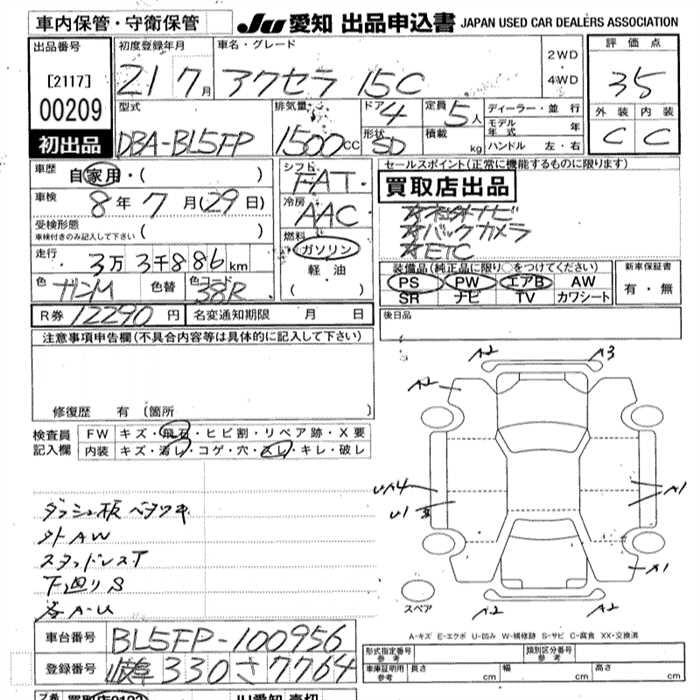 車内保管・守衛保管 JU 愛知 出品申込書 JAPAN USED CAR DEALERS ASSOCIATION
出品番号 [2117] 00209 初出品
初度登録年月 21 7月
車名・グレード アクセラ 15C
2WD ・ 4WD
評価点 35
外装 C 内装 C
型式 DBA-BL5FP
排気量 1500cc
ドア 4 形状 SD
定員 5人 積載 kg
ディーラー・並行
モデル年式 年
ハンドル 左・右
車歴 自家用・( )
車検 8年 7月(29日)
受検形態 車検付きのみ記入して下さい ( )
走行 3万3千886km
色 ガンM 色替 色コード 38R
R券 12290円 名変通知期限 月 日
シフト FAT
冷房 AAC
燃料 ガソリン ・ 軽油 ( )
セールスポイント(正常に機能するものに限ります)
買取店出品
オ社外ナビ
オバックカメラ
オETC
装備品(純正品に限り○をつけてください)
PS PW エアB AW
SR ナビ TV カワシート
新車保証書 有・無
後日品
注意事項申告欄(不具合内容等は具体的に記入して下さい)
修復歴 有 〔箇所 〕
検査員記入欄
FW キズ・飛石・ヒビ割・リペア跡・X要
内装 キズ・汚レ・コゲ・穴・スレ・キレ・破レ
ダッシュ板ベタツキ
外AW
スタッドレスT
下廻りS
各A-U
A2 A3
A2
UA4 A1
U1
A1
A2 A2
スペア
A-キズ E-エクボ U-凹み W-補修跡 S-サビ C-腐食 XX-交換済
車台番号 BL5FP-100956
登録番号 岐阜 330 さ 7764
形式指定番号 参考 類別区分番号 参考
車庫証明用 参考 長さ cm 幅 cm 高さ cm